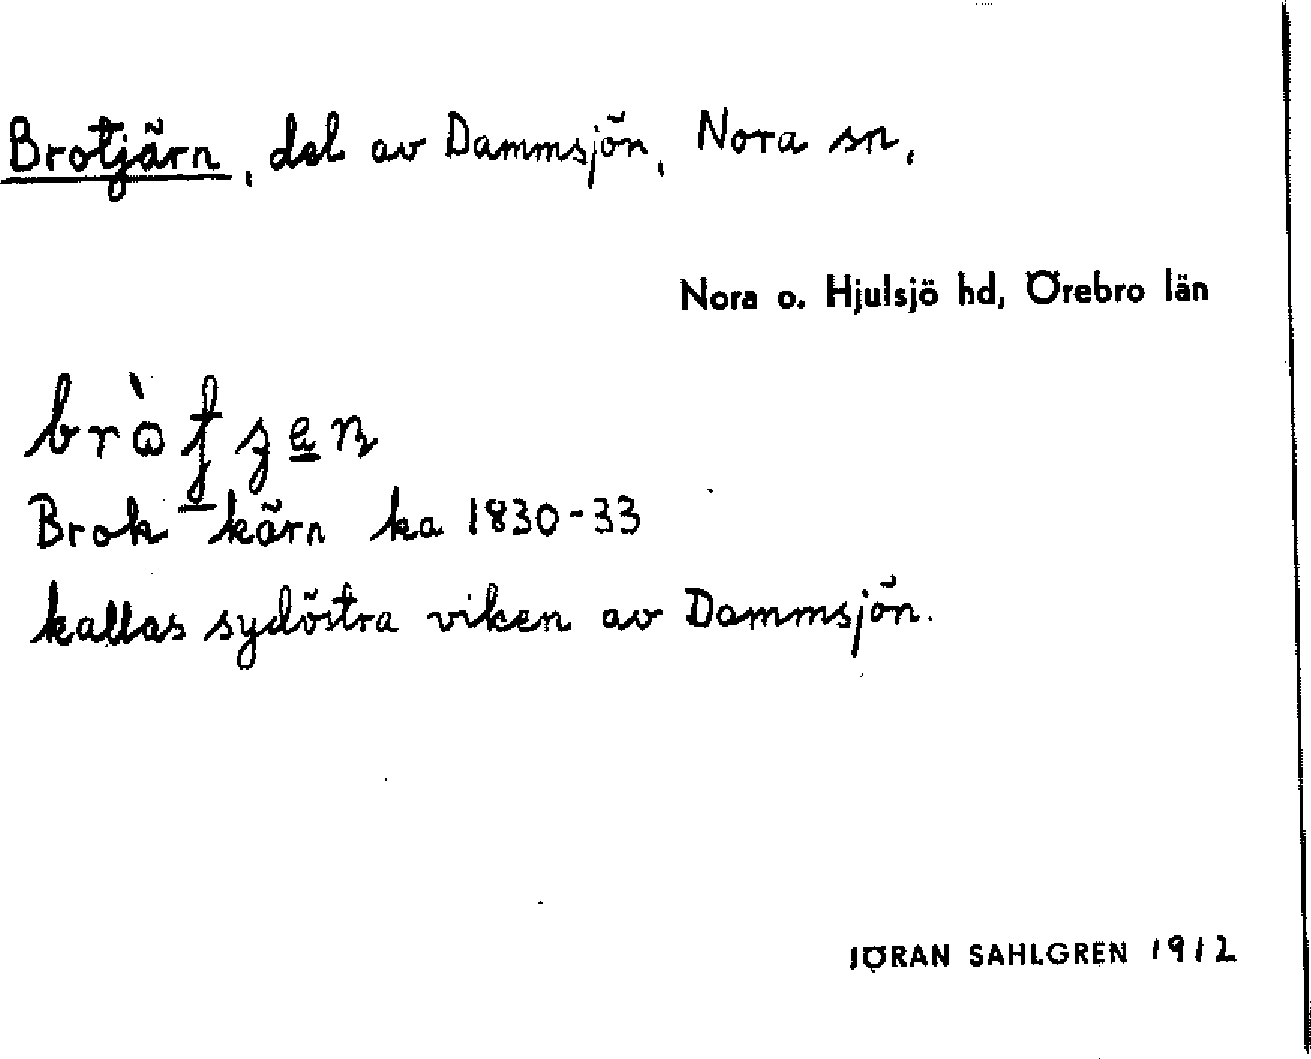 Brotjärn, del av Dammsjön, Nora sn,
Nora o. Hjulsjö hd, Örebro län
Brok-kärn ka 1830-33
kallas sydöstra viken av Dammsjön.
JÖRAN SAHLGREN 1912